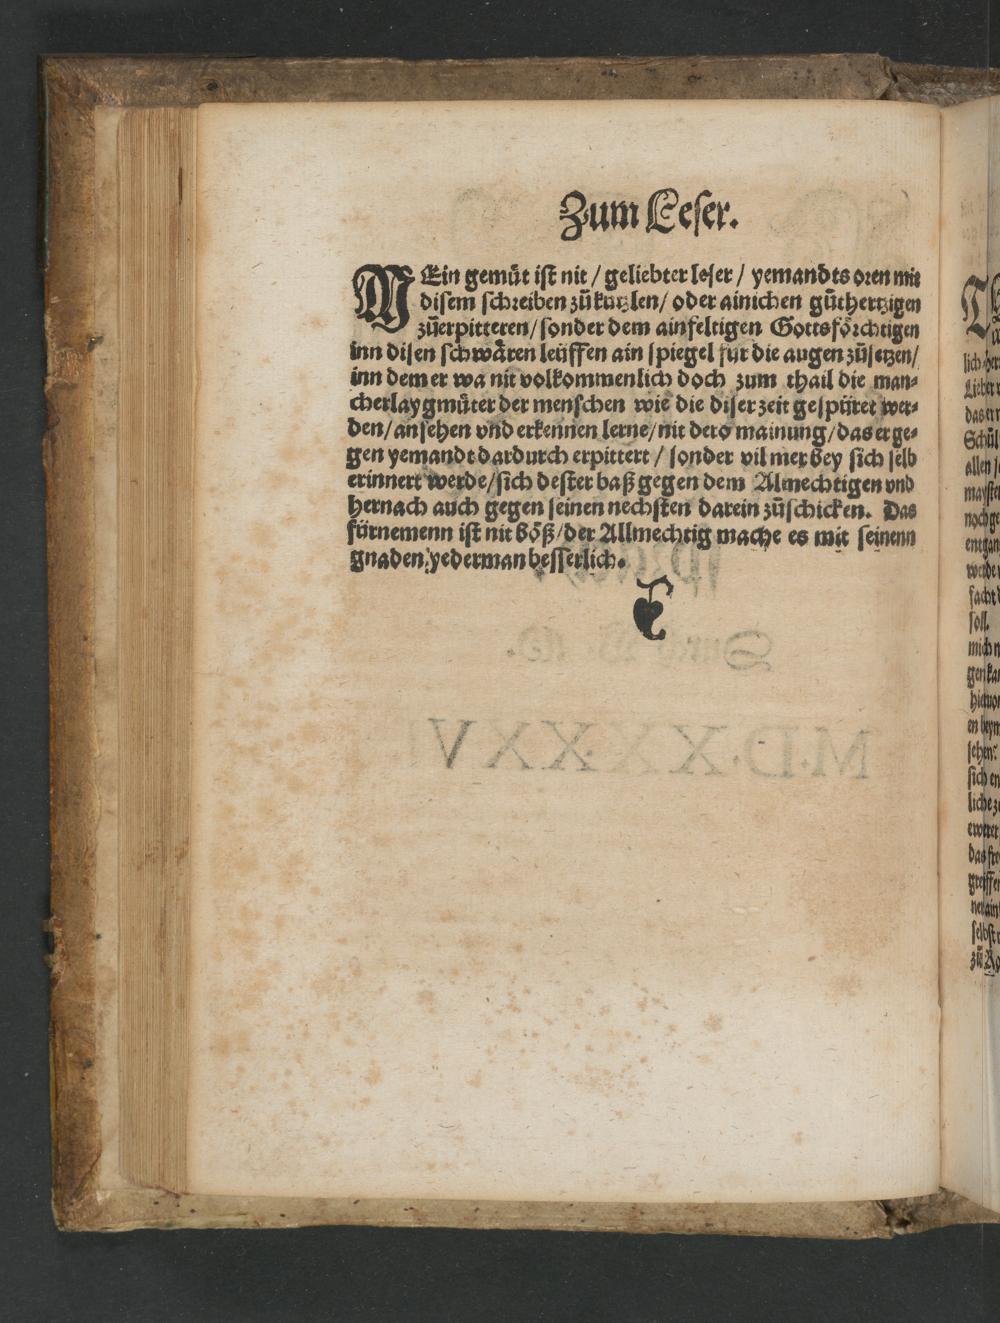 Zum Leser.
MEin gemuͤt ist nit / geliebter leser / yemandts oren mit
disem schreiben zuͦ kutzlen / oder ainichen guͦthertzigen
zuͦerpitteren / sonder dem ainfeltigen Gottsfoͤrchtigen
inn disen schwaͤren leuͤffen ain spiegel fuͤr die augen zuͦsetzen /
inn dem er wa nit volkommenlich doch zum thail die man⸗
cherlay gmuͤter der menschen wie die diser zeit gespuͤret wer⸗
den / ansehen vnd erkennen lerne / nit dero mainung / das er ge⸗
gen yemandt dardurch erpittert / sonder vil mer bey sich selb
erinnert werde / sich dester baß gegen dem Almechtigen vnd
hernach auch gegen seinen nechsten darein zuͦschicken. Das
fuͤrnemenn ist nit boͤß / der Allmechtig mache es mit seinenn
gnaden, yederman besserlich.